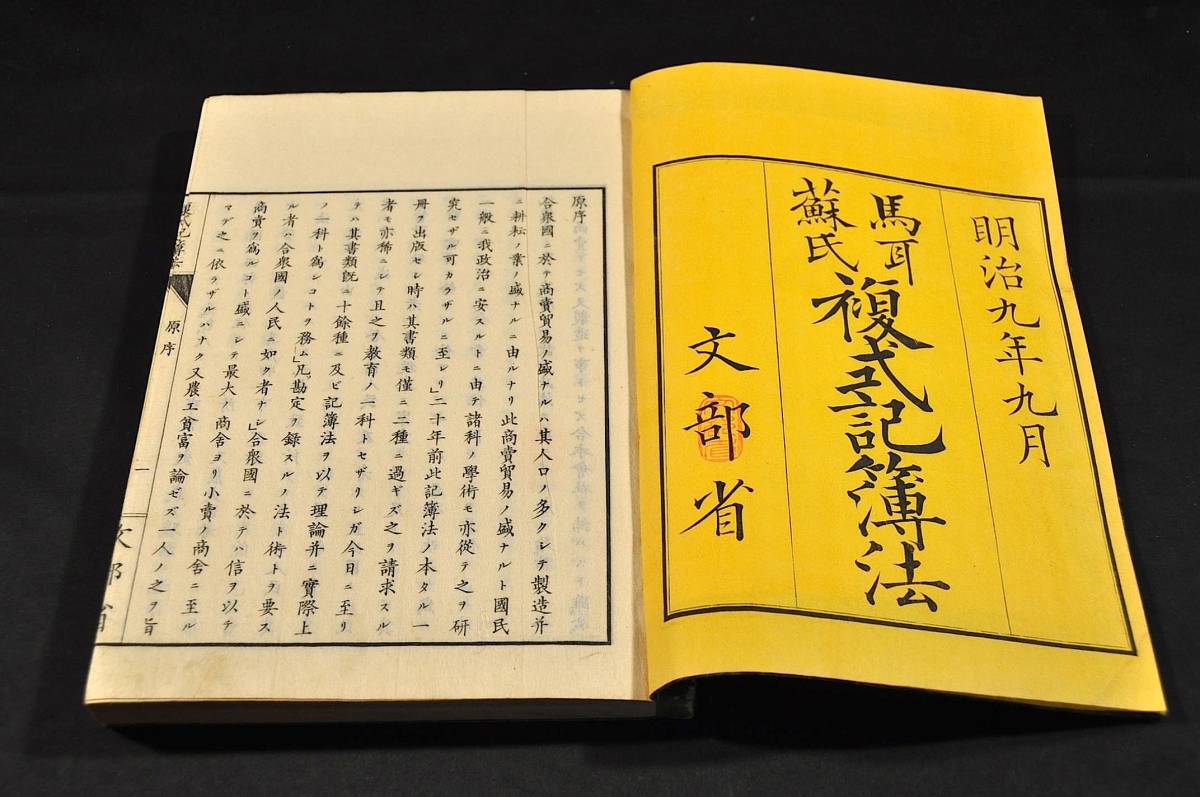 明治九年九月
馬耳
蘇氏
複式記簿法
文部省
原序
合衆國ニ於テ商賣貿易ノ盛ナルハ其人口ノ多クシテ製造并
ニ耕耘ノ業ノ盛ナルニ由ルナリ此商賣貿易ノ盛ナルト國民
一般ニ我政治ニ安スルトニ由テ諸科ノ學術モ亦從テ之ヲ研
究セザル可カラザルニ至レリ」二十年前此記簿法ノ本タル一
冊ヲ出版セシ時ハ其書類モ僅ニ二三種ニ過ギズ之ヲ請求スル
者モ亦稀ニシテ且之ヲ教育ノ一科トセザリシガ今日ニ至リ
テハ其書類既ニ十餘種ニ及ビ記簿法ヲ以テ理論并ニ實際上
ノ一科ト爲シコトヲ務ム」凡勘定ヲ録スルノ法ト術トヲ要ス
ル者ハ合衆國ノ人民ニ如ク者ナシ」合衆國ニ於テハ信ヲ以テ
商賣ヲ爲ルコト盛ニシテ最大ノ商舎ヨリ小賣ノ商舎ニ至ル
マデ之ニ依ラザルハナク又農工貧富ヲ論ゼズ一人ノ之ヲ旨
複式記簿法
原序
一
文部省